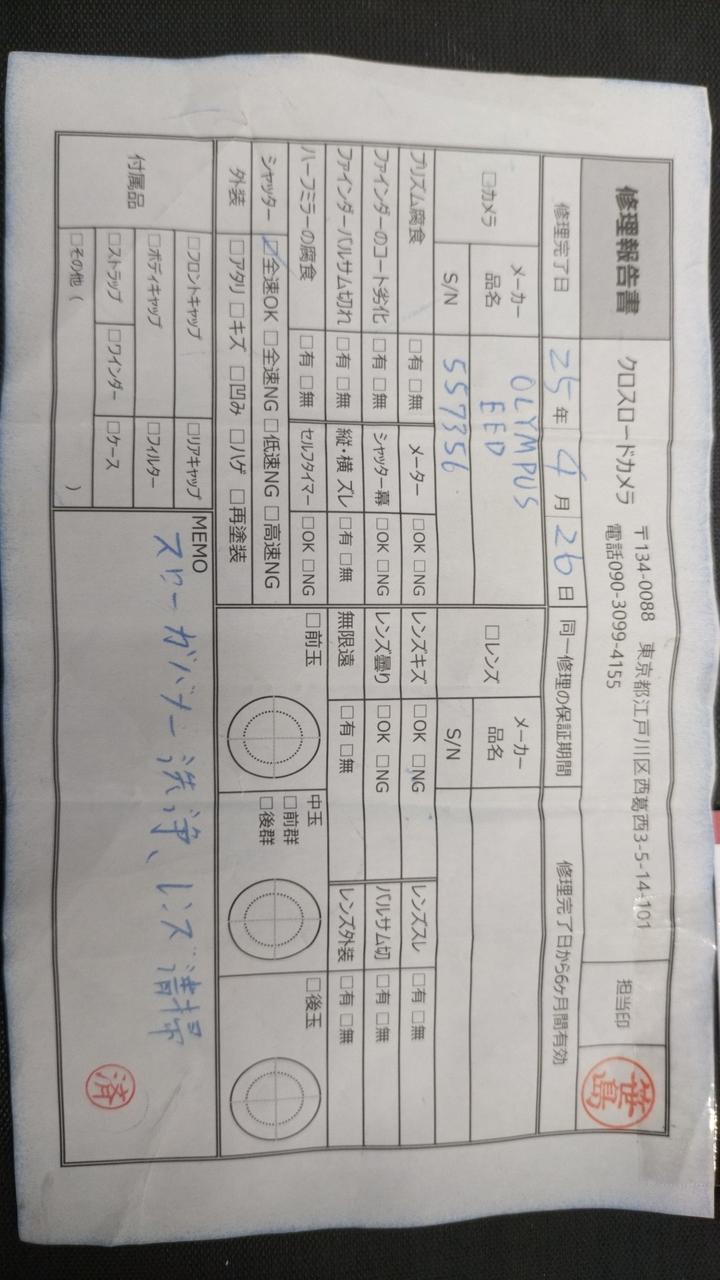 修理報告書
クロスロードカメラ 〒134-0088 東京都江戸川区西葛西3-5-14-101
電話090-3099-4155
担当印
笹島
修理完了日 25年 4月 26日 同一修理の保証期間 修理完了日から6ヶ月間有効
□カメラ
メーカー OLYMPUS
品名 EED
S/N 557356
□レンズ
メーカー
品名
S/N
プリズム腐食 □有 □無 メーター □OK □NG レンズキズ □OK □NG レンズスレ □有 □無
ファインダーのコート劣化 □有 □無 シャッター幕 □OK □NG レンズ曇り □OK □NG バルサム切 □有 □無
ファインダーバルサム切れ □有 □無 縦・横 ズレ □有 □無 無限遠 □有 □無 レンズ外装 □有 □無
ハーフミラーの腐食 □有 □無 セルフタイマー □OK □NG
シャッター ☑全速OK □全速NG □低速NG □高速NG
外装 □アタリ □キズ □凹み □ハゲ □再塗装
□前玉
中玉
□前群
□後群
□後玉
付属品
□フロントキャップ □リアキャップ
□ボディキャップ □フィルター
□ストラップ □ワインダー □ケース
□その他 ( )
MEMO
洗浄、レンズ清掃
済